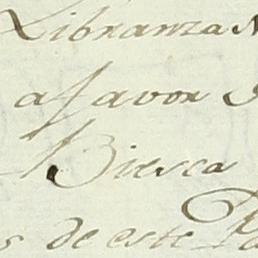 Libranza N
a favor d
Biesca
s de este Pa